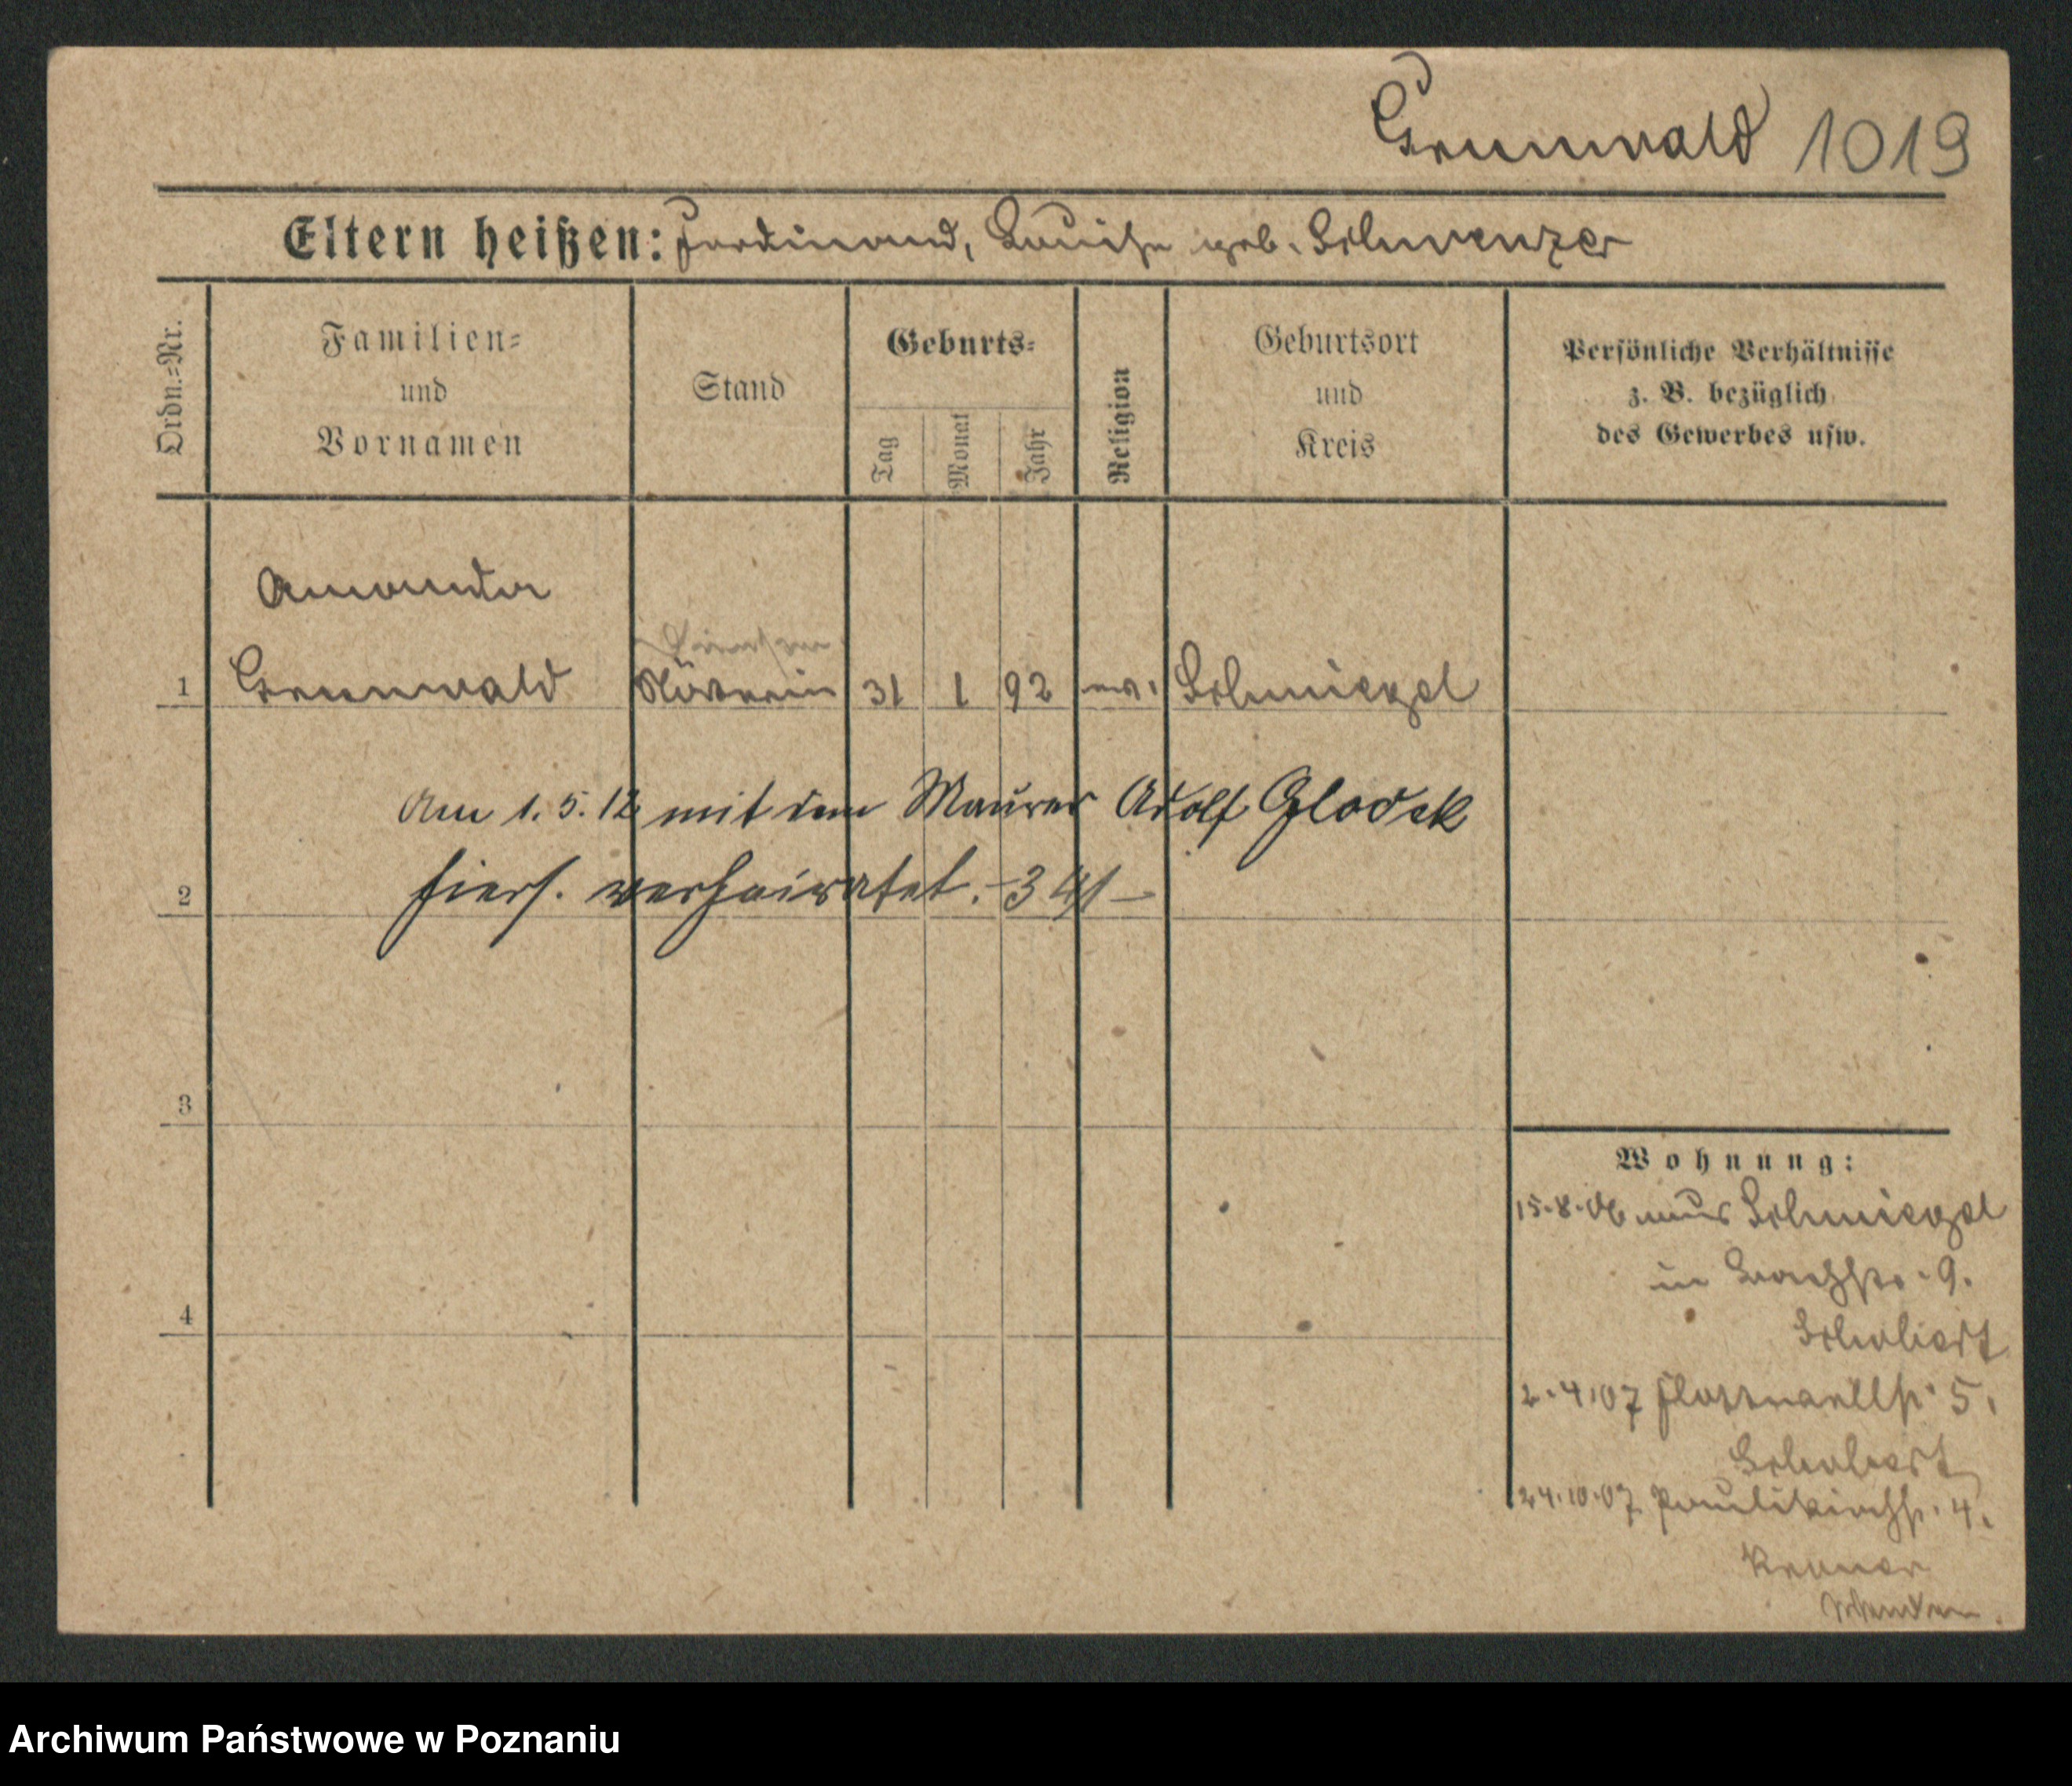 Grunwald 1019
Eltern heißen: Ferdinand, Louise geb. Schwenzer
Ordn.=Nr.
Familien=
und
Vornamen
Stand
Geburts=
Tag
Monat
Jahr
Religion
Geburtsort
und
Kreis
Persönliche Verhältnisse
z. B. bezüglich
des Gewerbes usw.
Amanda
1 Grunwald Näherin 31 1 92 ev. Schmiegel
Am 1. 5. 12 mit dem Maurer Adolf Glodek
2 hiers. verheiratet. - 341 -
3
4
Wohnung:
15.8.06 aus Schmiegel
in 9.
Schubert
2.4.07 5.
Schubert
24.10.07 Paulikirchstr. 4.
Archiwum Państwowe w Poznaniu